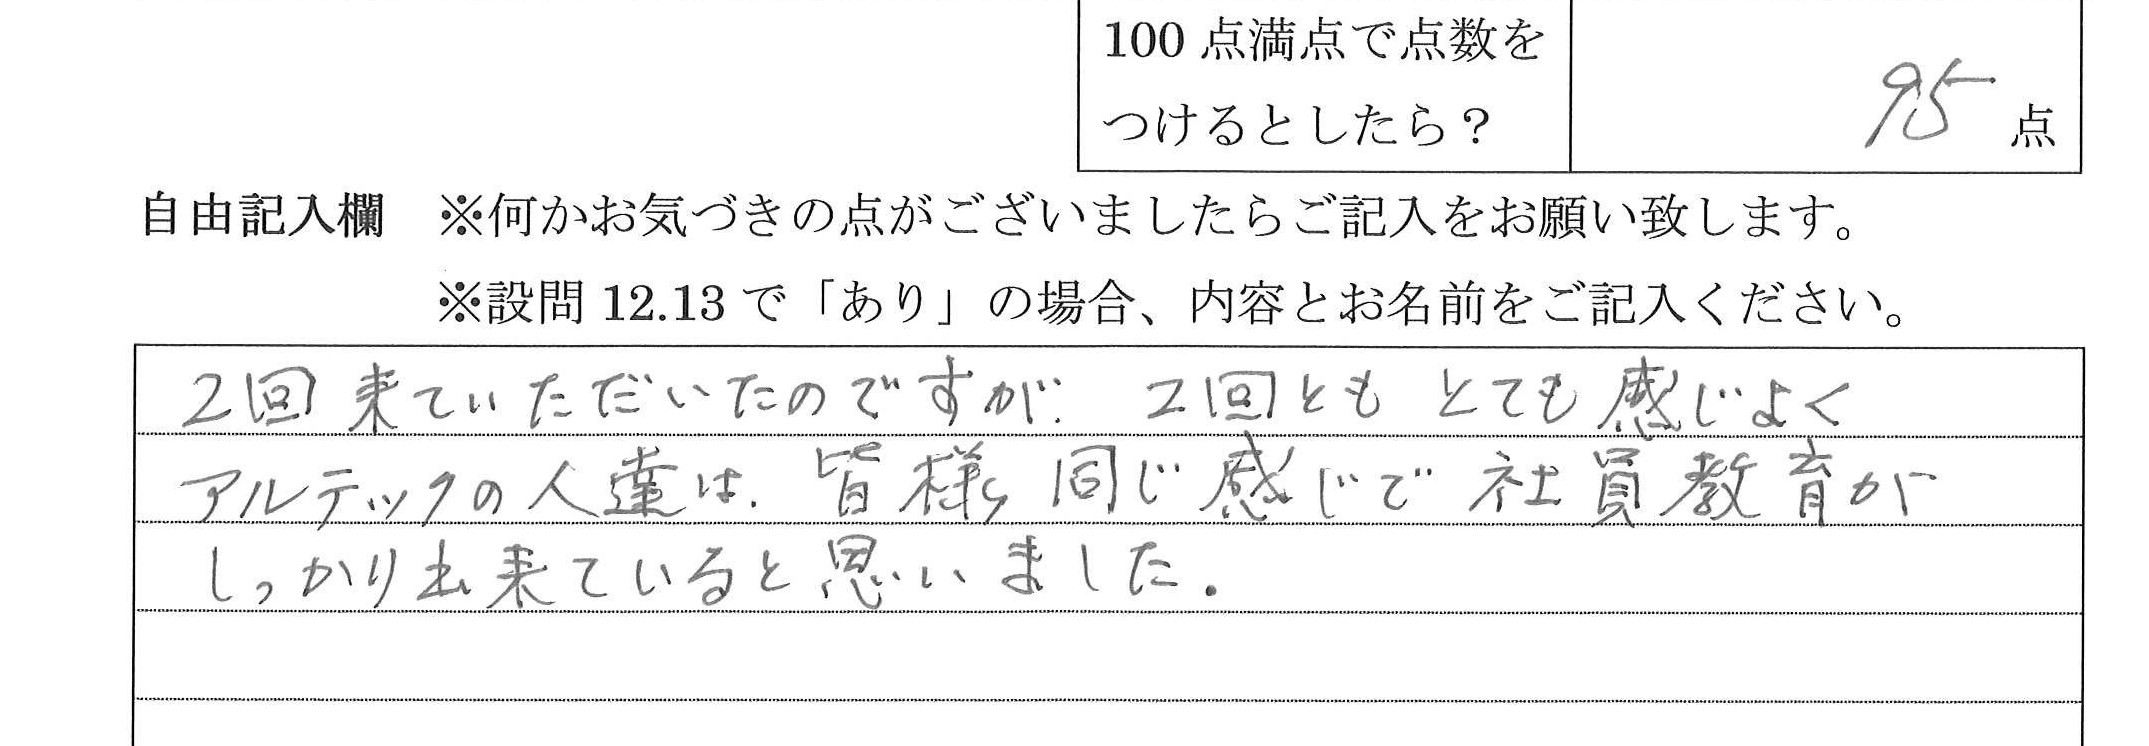 100点満点で点数を
つけるとしたら？
95 点
自由記入欄 ※何かお気づきの点がございましたらご記入をお願い致します。
※設問 12.13 で「あり」の場合、内容とお名前をご記入ください。
2回来ていただいたのですが、2回とも とても感じよく
アルテックの人達は、皆様同じ感じで 社員教育が
しっかり出来ていると思いました。